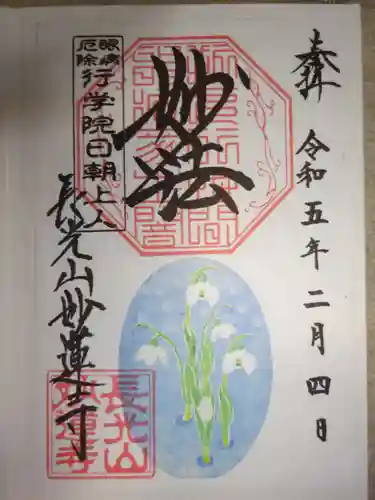 奉拝
令和五年二月四日
妙法
眼病
厄除
行学院日朝上人
長光山妙蓮寺
長光山
妙蓮寺